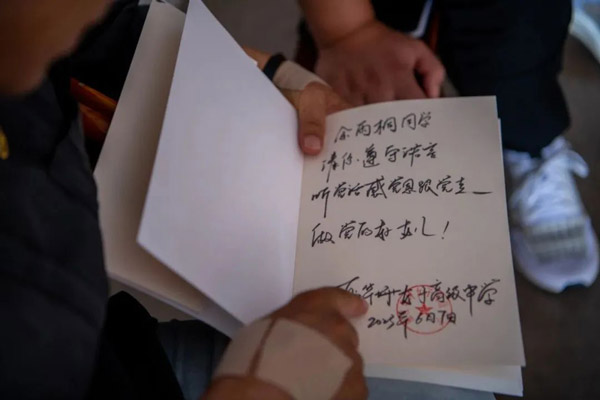 余雨桐同学
请你遵守诺言
听党话感党恩跟党走
做党的好女儿！
华坪女子高级中学
2025年6月7日